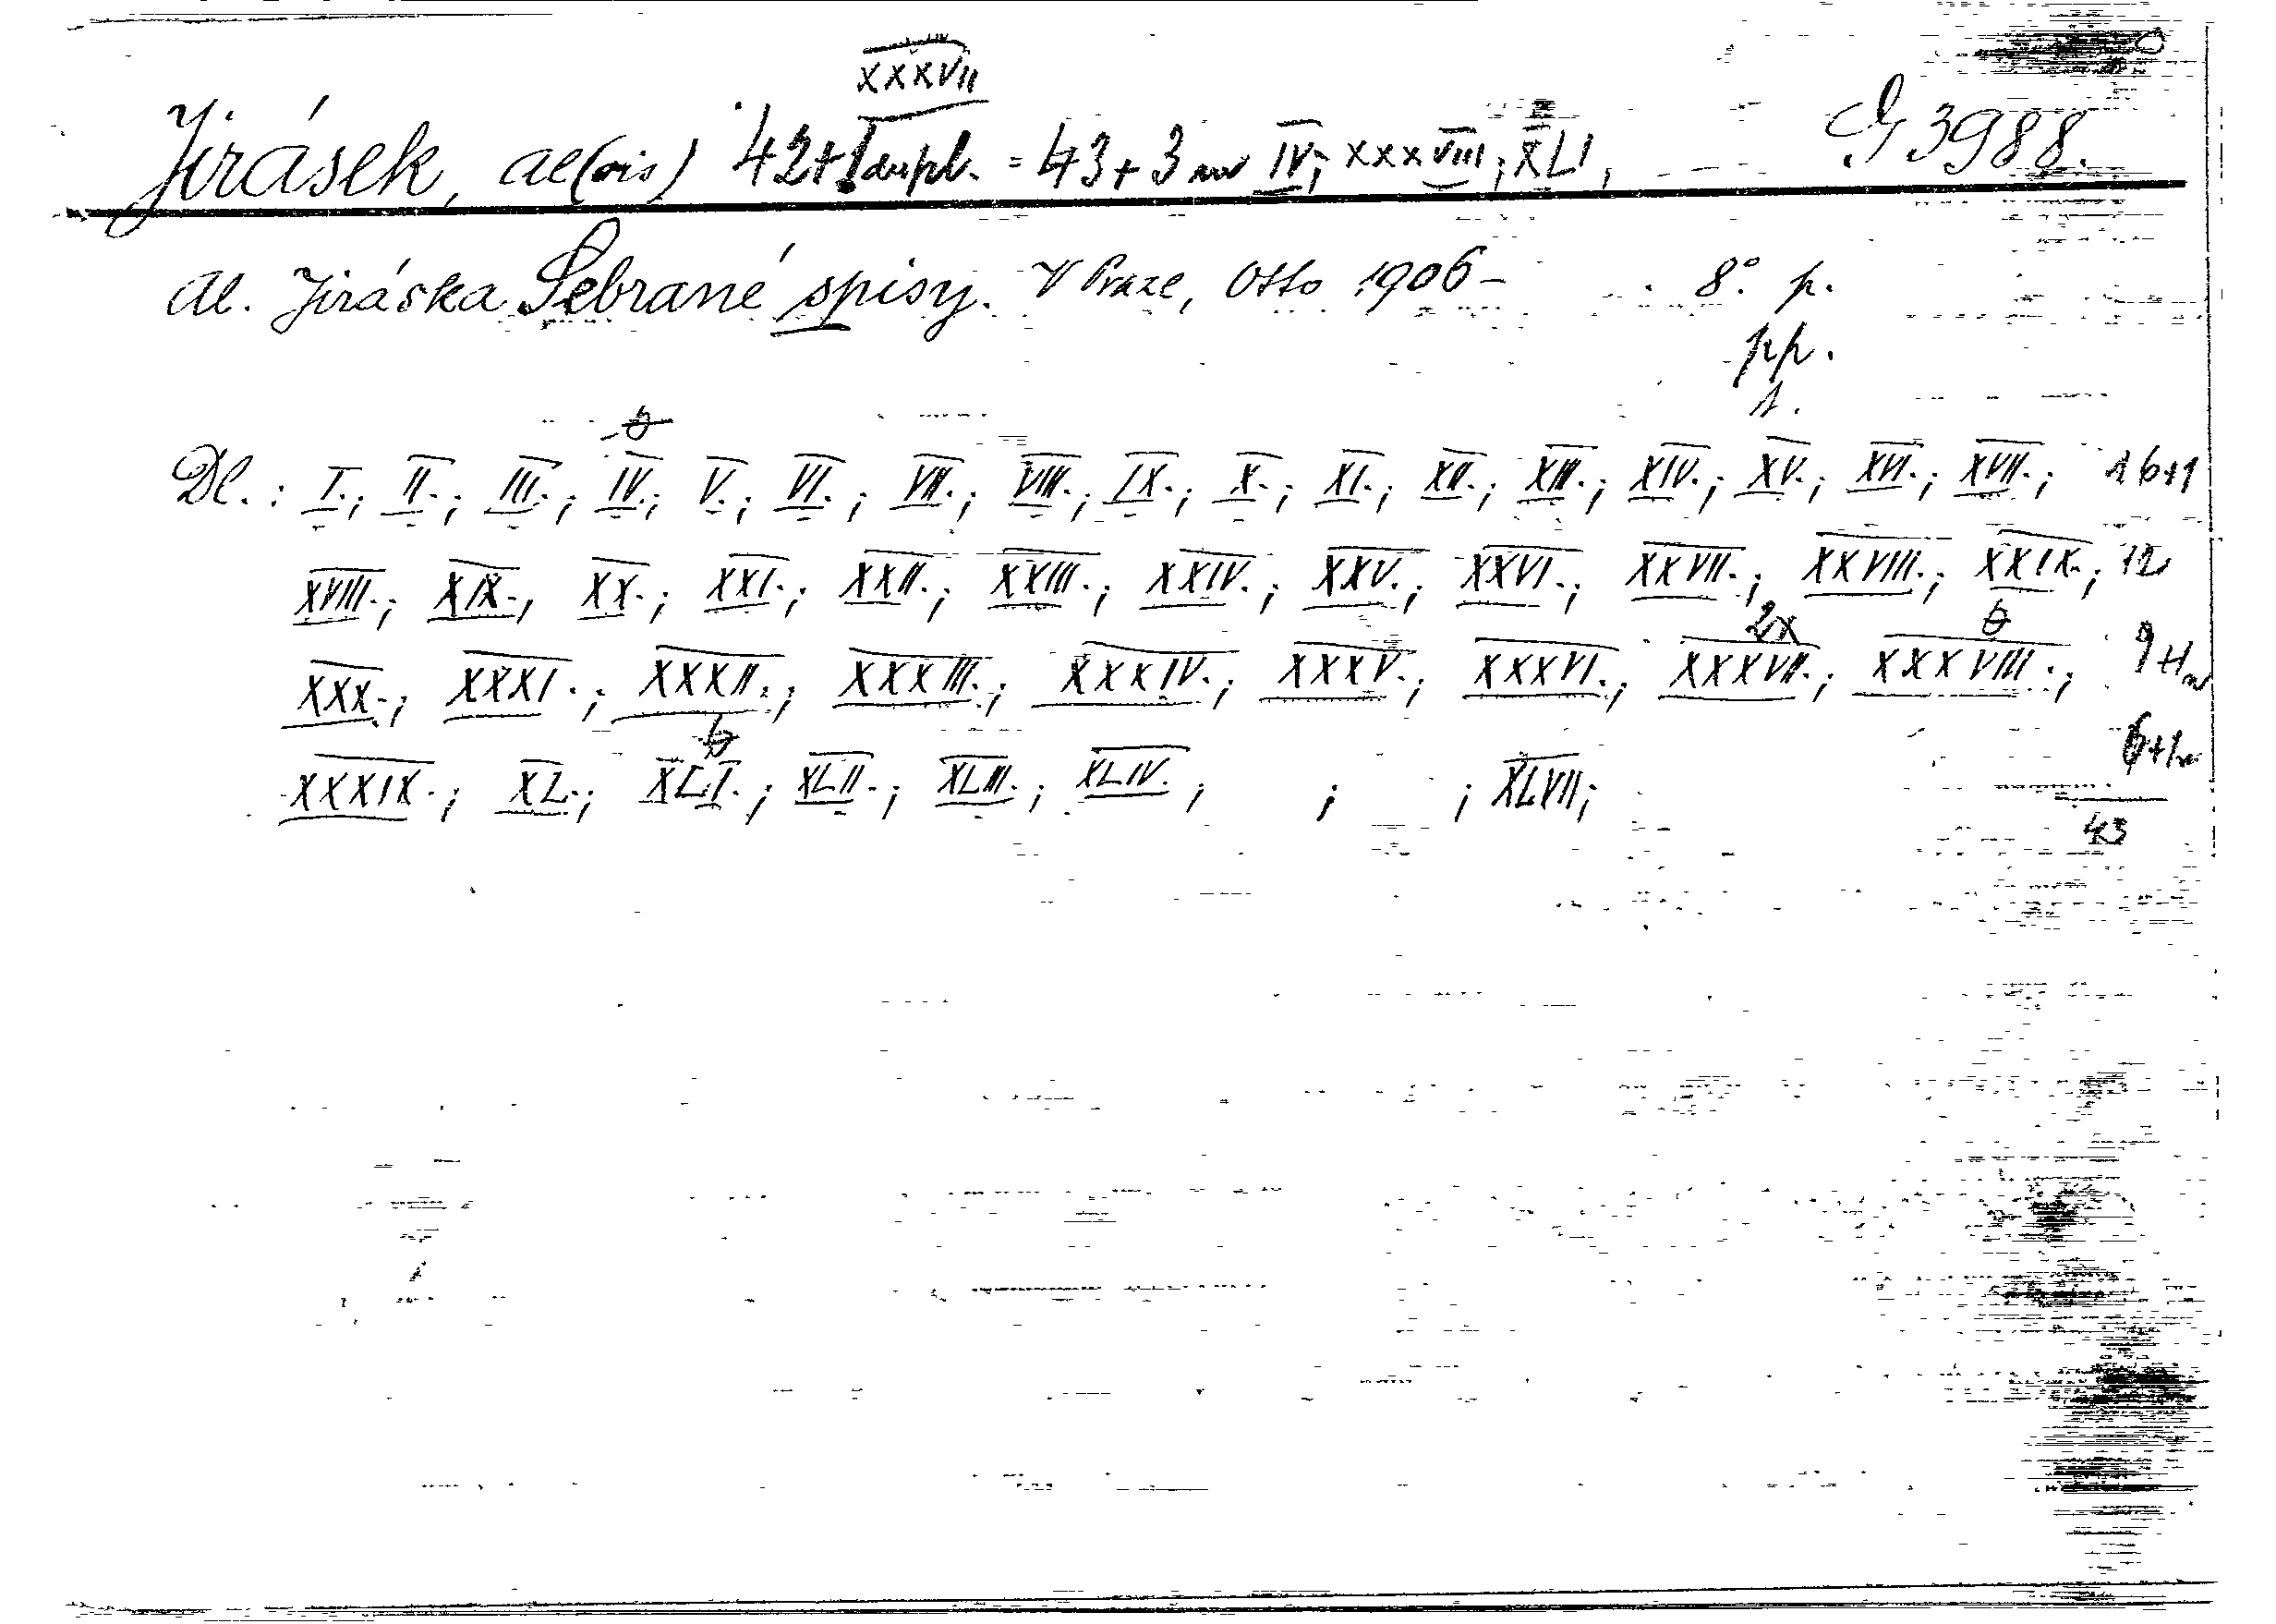 XXXVII
Jirásek, Al(ois) 42+1 dupl. = 43+3 IV; XXXVIII; XLI, G 3988.
Al. Jiráska Sebrané spisy. V Praze, Otto 1906- 8° p.
pp.
1.
Dl.: I.; II.; III.; IV.; V.; VI.; VII.; VIII.; IX.; X.; XI.; XII.; XIII.; XIV.; XV.; XVI.; XVII.; 16+1
XVIII.; XIX., XX.; XXI.; XXII.; XXIII.; XXIV.; XXV.; XXVI.; XXVII.; XXVIII.; XXIX.; 12
2x
XXX.; XXXI.; XXXII.; XXXIII.; XXXIV.; XXXV.; XXXVI.; XXXVII.; XXXVIII.; 9+1
6+1
XXXIX.; XL.; XLI.; XLII.; XLIII.; XLIV.; ; ; XLVII;
43